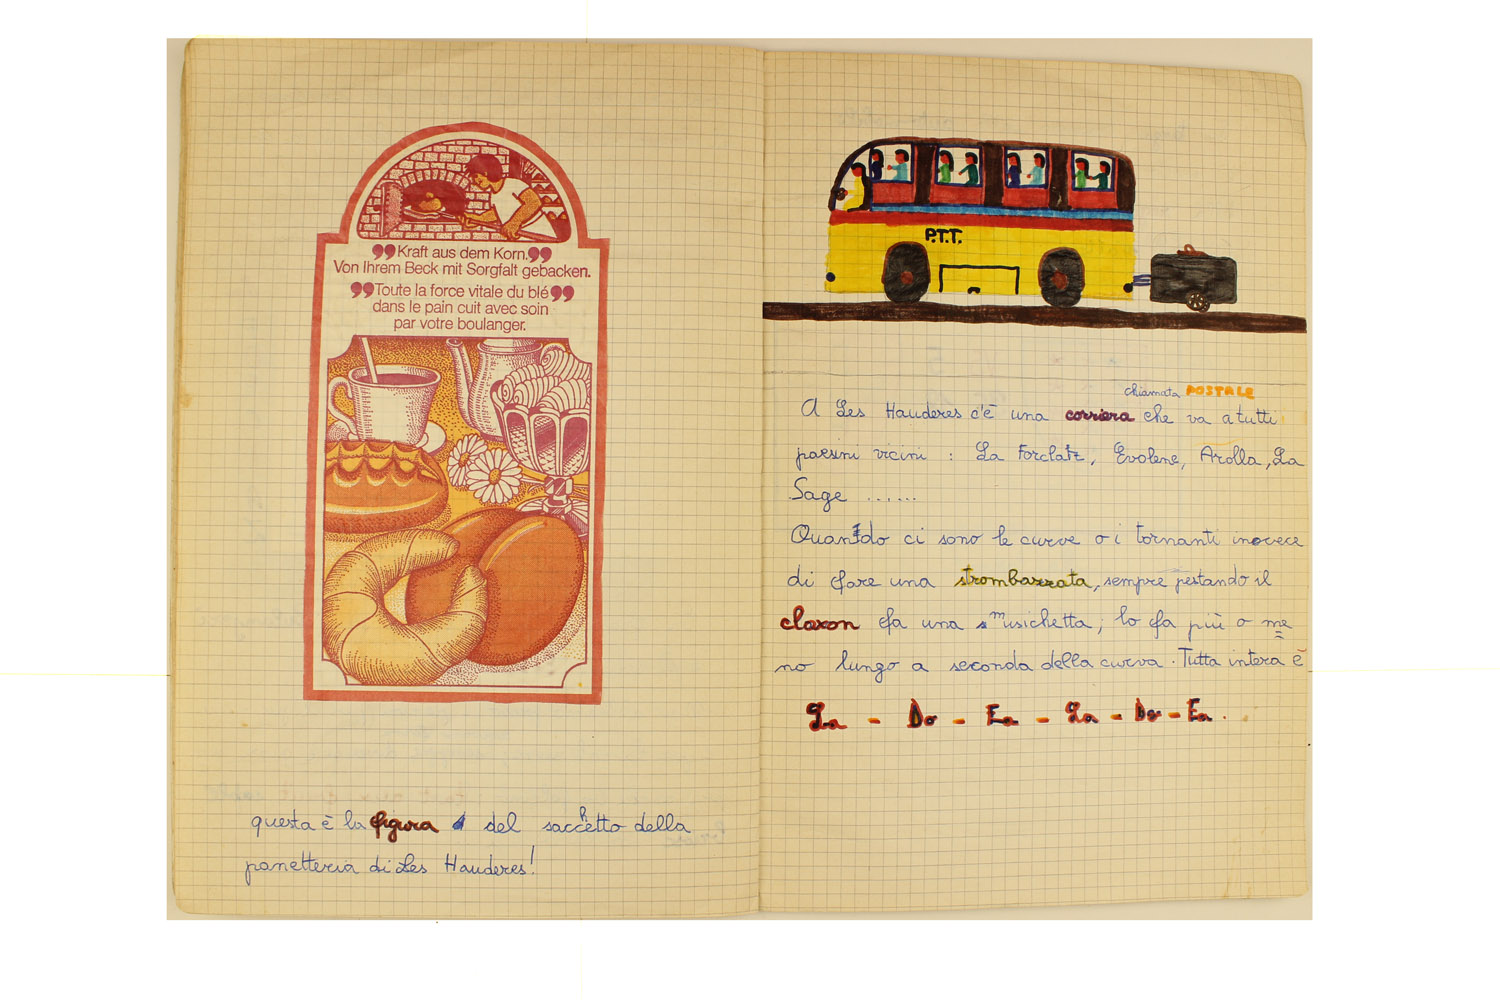 "Kraft aus dem Korn."
Von Ihrem Beck mit Sorgfalt gebacken.
"Toute la force vitale du blé"
dans le pain cuit avec soin
par votre boulanger.
questa è la figura del sacchetto della
panetteria di Les Hauderes!
P.T.T.
chiamata POSTALE
A Les Hauderes c'è una corriera che va a tutti
paesini vicini : La Forclatz, Evolene, Arolla, La
Sage ......
Quando ci sono le curve o i tornanti invece
di fare una strombazzata, sempre pestando il
claxon fa una musichetta; lo fa più o me
no lungo a seconda della curva. Tutta intera è
La - Do - Fa - La - Do - Fa.